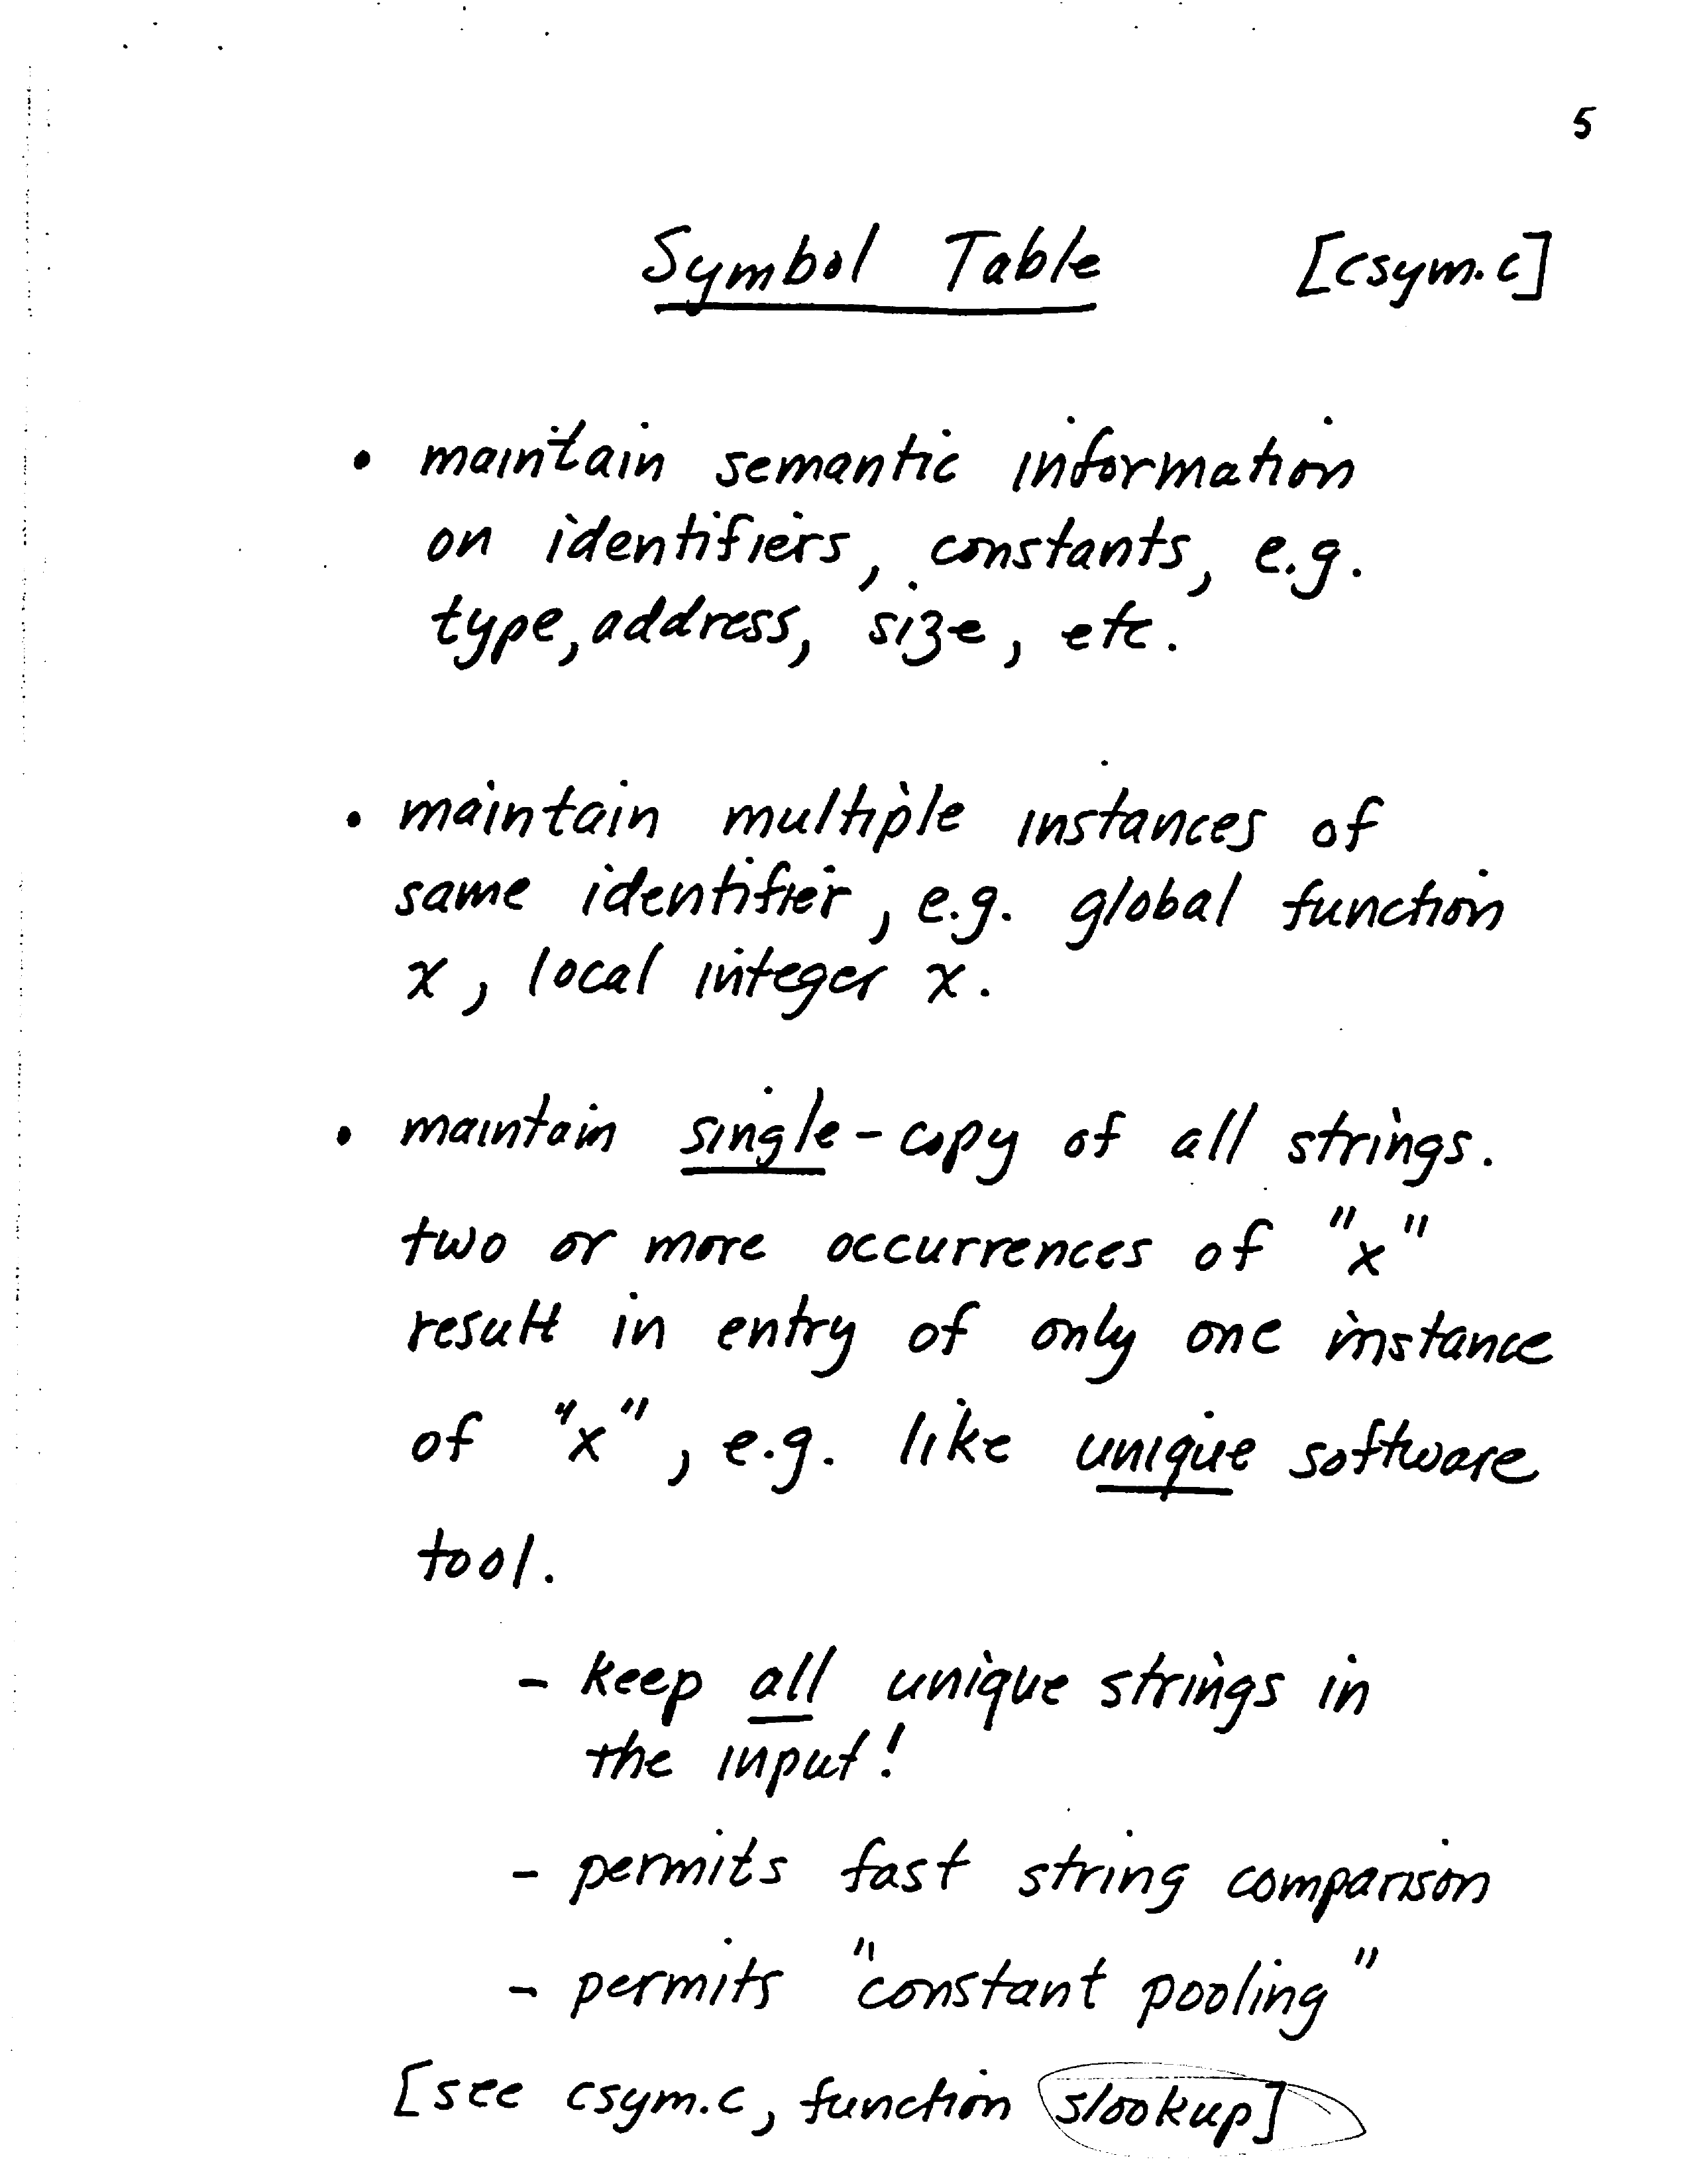 5
Symbol Table [csym.c]
• maintain semantic information
on identifiers, constants, e.g.
type, address, size, etc.
• maintain multiple instances of
same identifier, e.g. global function
x, local integer x.
• maintain single-copy of all strings.
two or more occurrences of "x"
result in entry of only one instance
of "x", e.g. like unique software
tool.
- keep all unique strings in
the input!
- permits fast string comparison
- permits "constant pooling"
[see csym.c, function slookup]